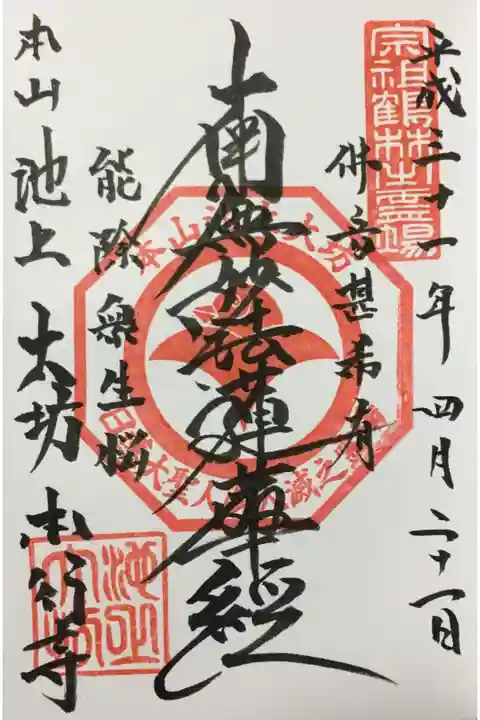 平成三十一年四月二十一日
宗祖鶴林之霊場
仏音甚希有
南無妙法蓮華経
能除衆生悩
本山池上大坊本行寺
池上大坊